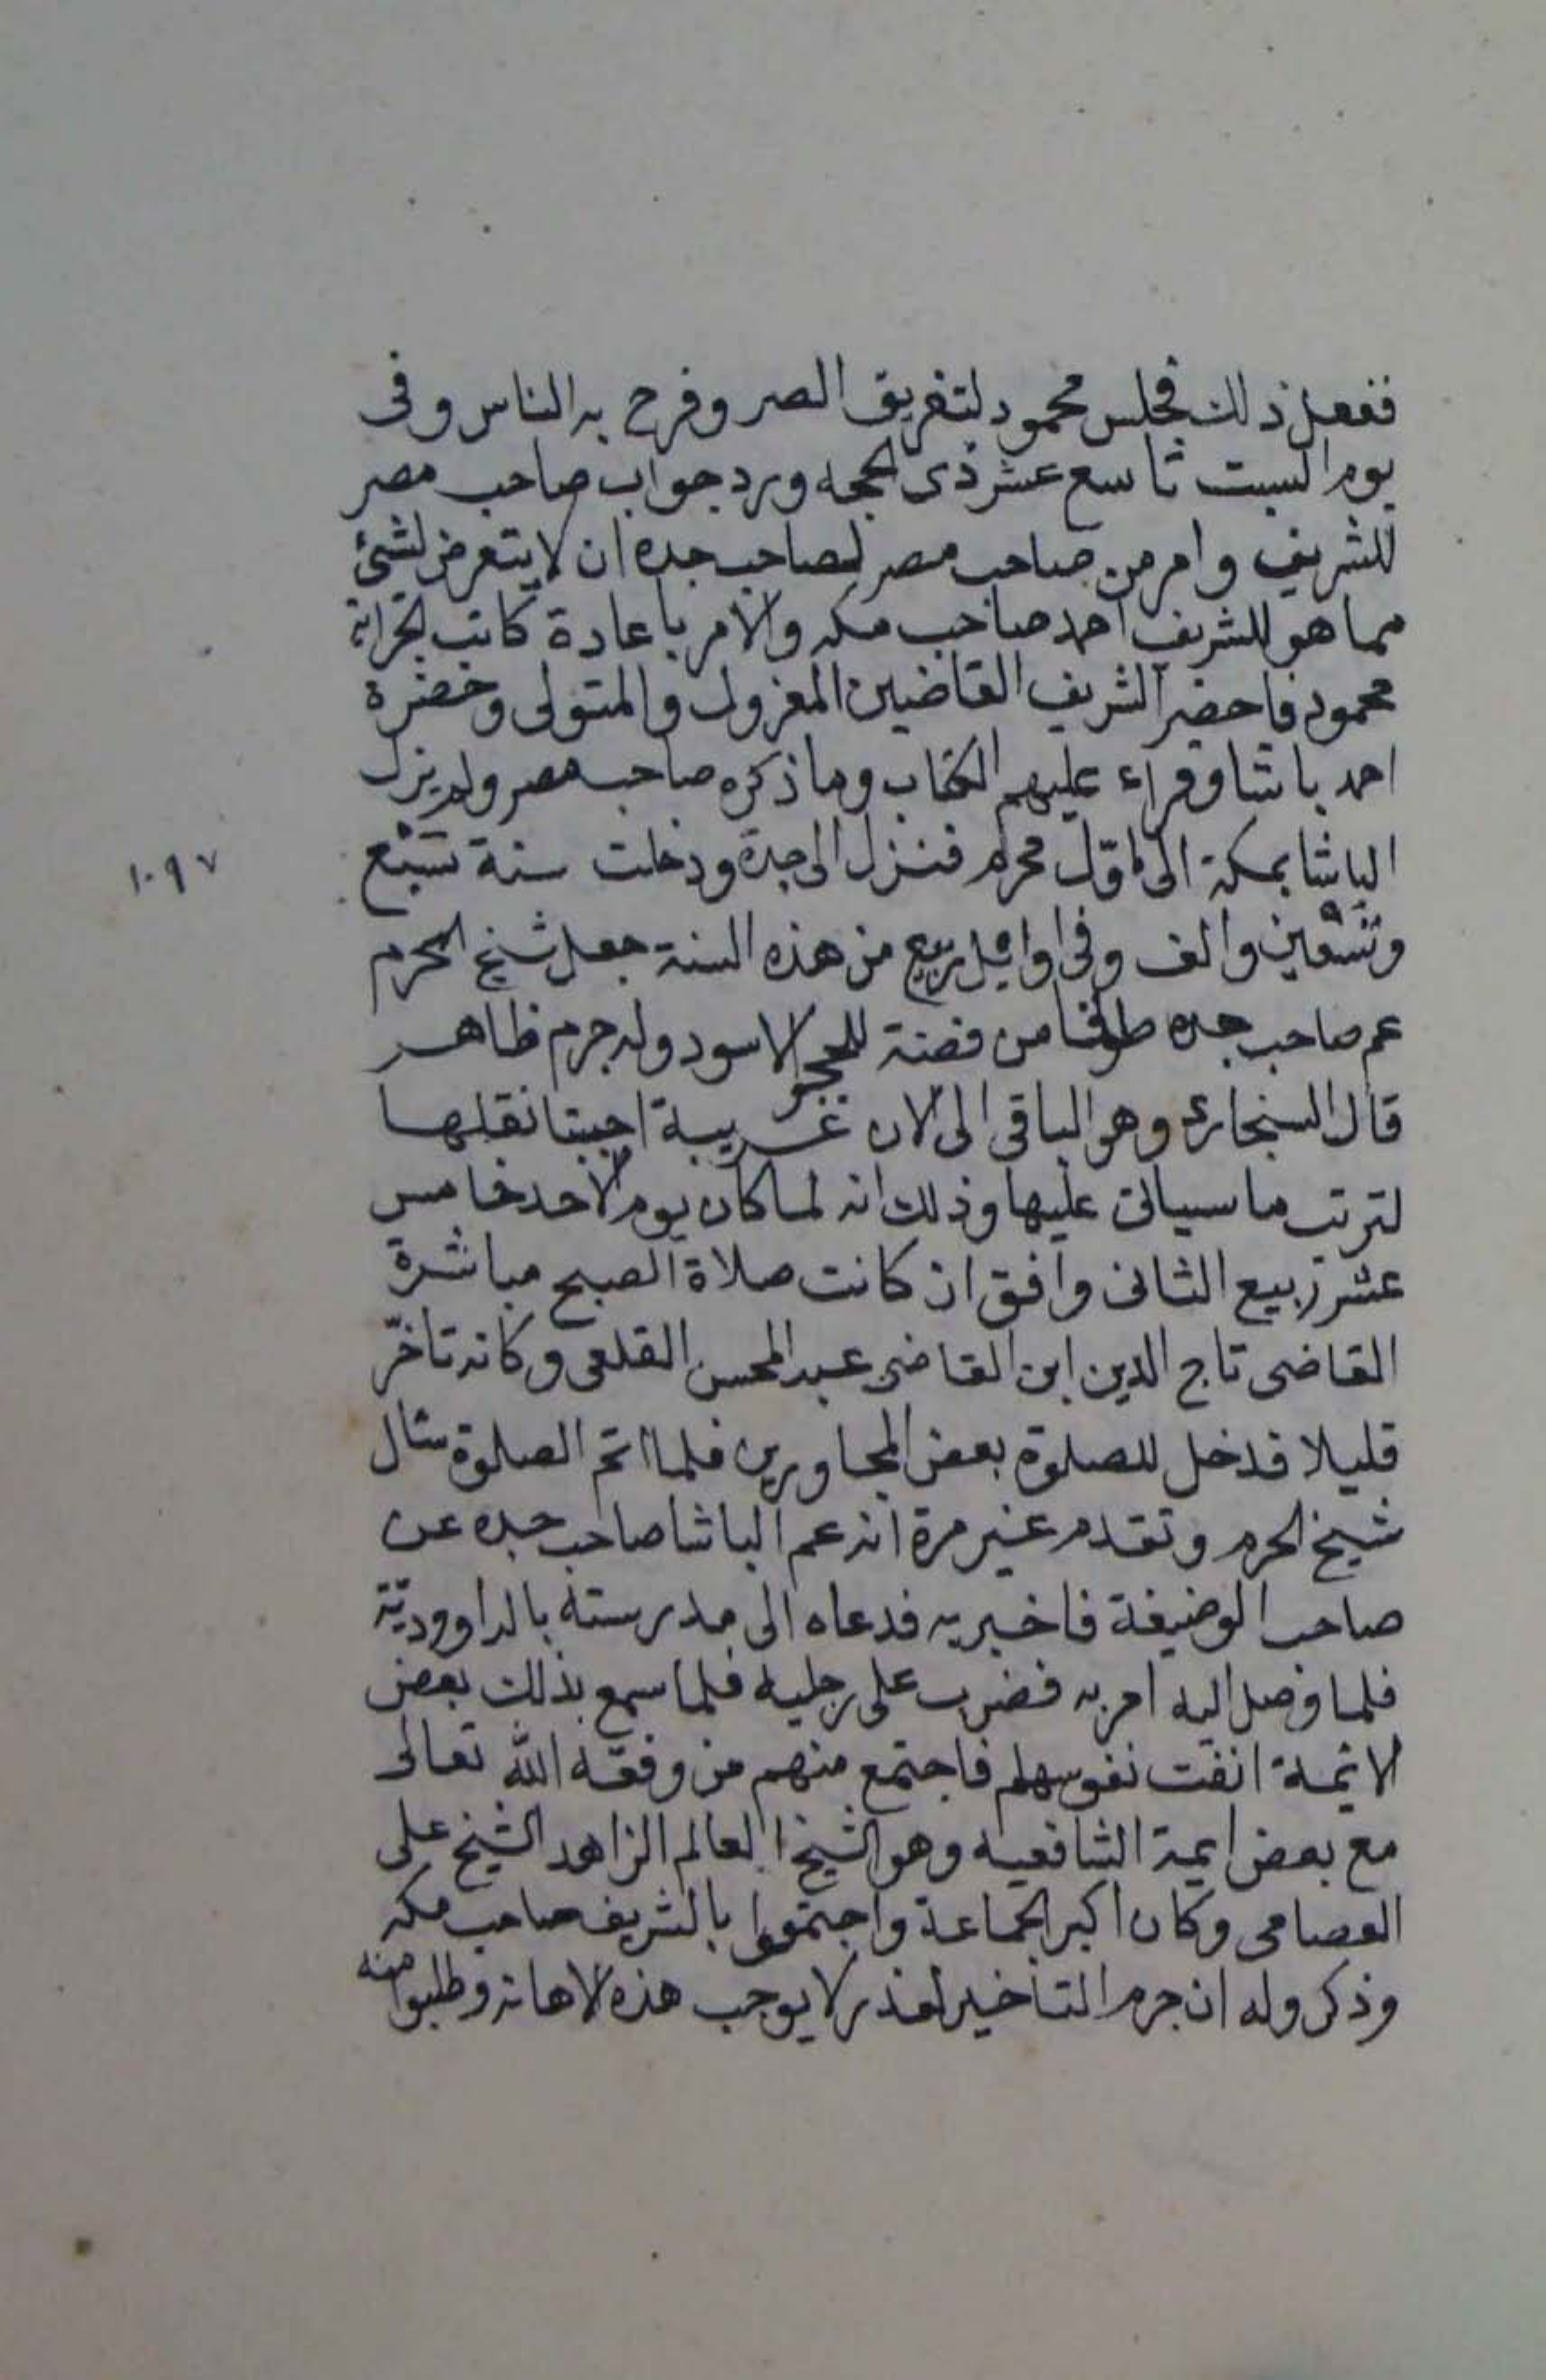 ففعل ذلك فجلس محمود لتفريق الصر وفرح به الناس وفى
يوم السبت تاسع عشر ذى الحجه ورد جواب صاحب مصر
للشريف وامر من صاحب مصر لصاحب جده ان لا يتعرض لشئ
مما هو للشريف احمد صاحب مكه والامر باعادة كاتب الخزانه
محمود فاحضر الشريف القاضيين المعزول والمتولى وحضرة
احمد باشا وقراء عليهم الكتاب وما ذكره صاحب مصر ولم يزل
الباشا بمكة الى اوّل محرم فنزل الى جدة ودخلت سنة سبع
١٠٩٧
وتسعين والف وفى اوائل ربيع من هذه السنة جعل شيخ الحرم
عم صاحب جده طوقا من فضة للحجر الاسود وله جرم ظاهر
قال السنجارى وهو الباقى الى الان غريبة احببنا نقلها
لترتب ما سياتى عليها وذلك انه لما كان يوم الاحد خامس
عشر ربيع الثانى وافق ان كانت صلاة الصبح مباشرة
القاضى تاج الدين ابن القاضى عبد المحسن القلعى وكانه تاخّر
قليلا فدخل للصلوة بعض المجاورين فلما اتم الصلوة سال
شيخ الحرم وتقدم غير مرة انه عم الباشا صاحب جده عن
صاحب الوضيفة فاخبر به فدعاه الى مدرسته بالداووديّة
فلما وصل اليه امر به فضرب على رجليه فلما سمع بذلك بعض
الائمة انفت نفوسهم فاجتمع منهم من وفقه الله تعالى
مع بعض ايمة الشافعيه وهو الشيخ العالم الزاهد الشيخ على
العصامى وكان اكبر الجماعة واجتمعوا بالشريف صاحب مكه
وذكروله ان جرم التاخير لعذر لا يوجب هذه الاهانه وطلبوا منه